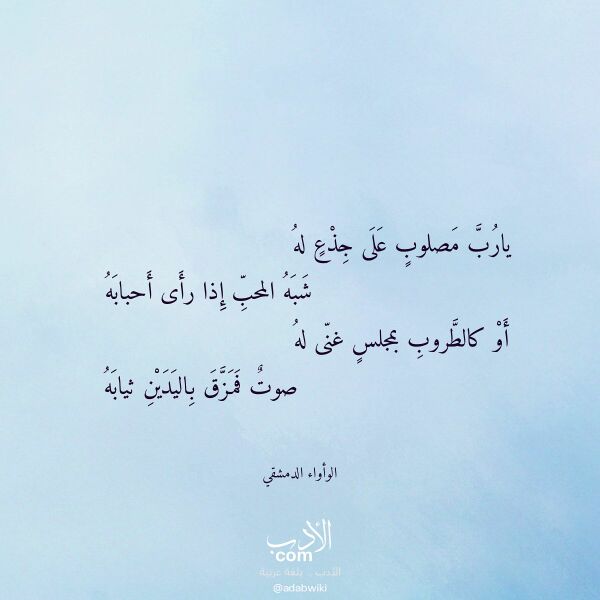 يارُبَّ مَصلوبٍ عَلَى جِذْعٍ لهُ
شَبَهُ المحبِّ إِذا رأَى أَحبابَهُ
أَوْ كالطَّروبِ بمجلسٍ غنّى لهُ
صوتٌ فَمَزَّقَ بِاليَدَيْنِ ثيابَهُ
الوأواء الدمشقي
الأدب
com
الأدب .. بلغة عربية
@adabwiki